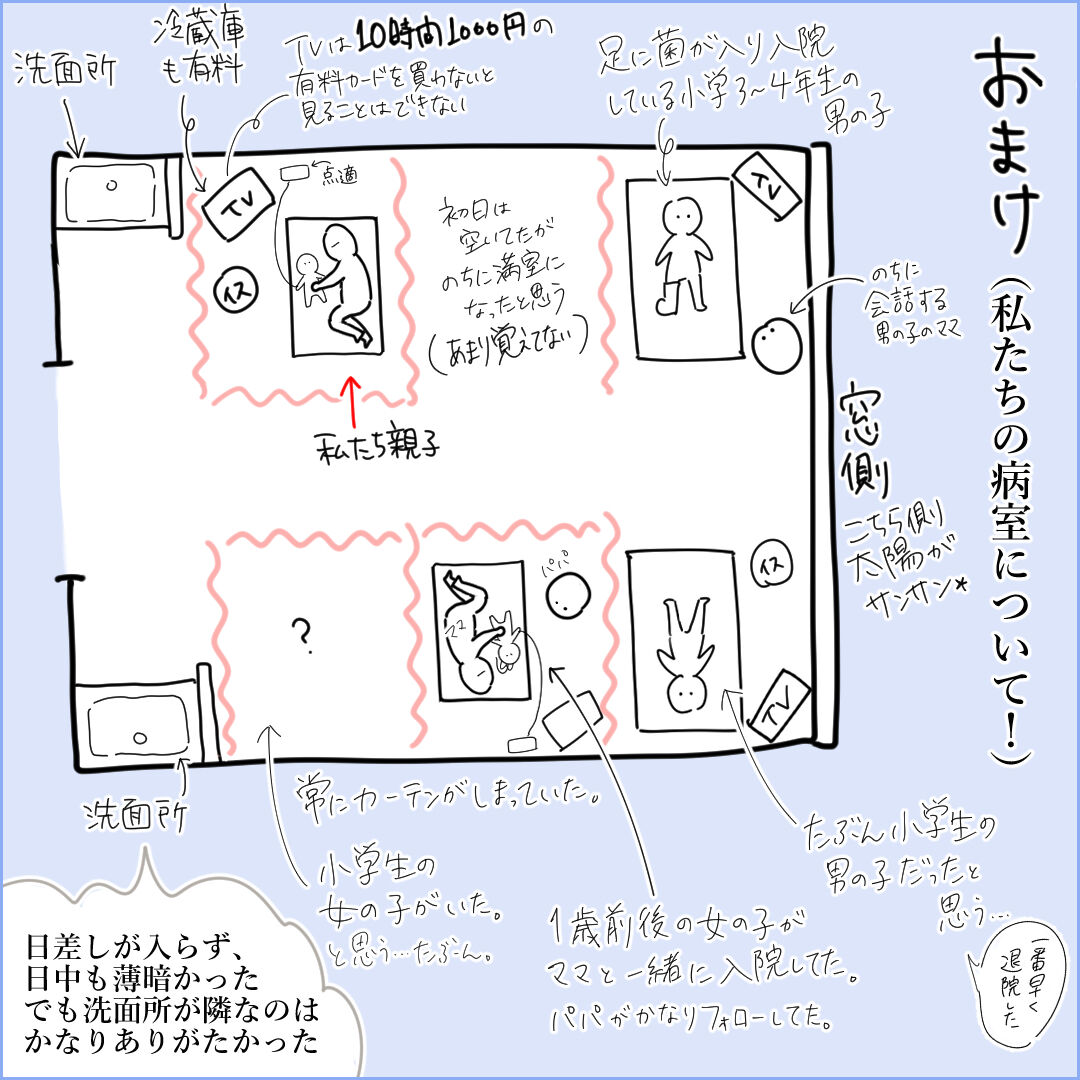 おまけ(私たちの病室について!)
洗面所
冷蔵庫
も有料
TVは10時間1000円の
有料カードを買わないと
見ることはできない
足に菌が入り入院
している小学3〜4年生の
男の子
TV
点適
イス
初日は
空いてたが
のちに満室に
なったと思う
(あまり覚えてない)
TV
のちに
会話する
男の子のママ
私たち親子
窓側
こちら側
太陽が
サンサン*
?
ママ
パパ
イス
TV
洗面所
常にカーテンがしまっていた。
小学生の
女の子がいた。
と思う…たぶん。
1歳前後の女の子が
ママと一緒に入院してた。
パパがかなりフォローしてた。
たぶん小学生の
男の子だったと
思う…
一番早く
退院した
日差しが入らず、
日中も薄暗かった
でも洗面所が隣なのは
かなりありがたかった